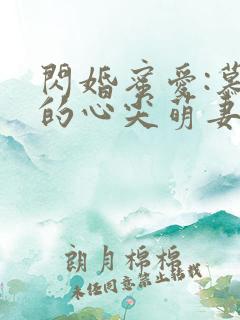 閃婚蜜愛:慕
的心尖萌妻
朗月棉棉
未经同意禁止转载